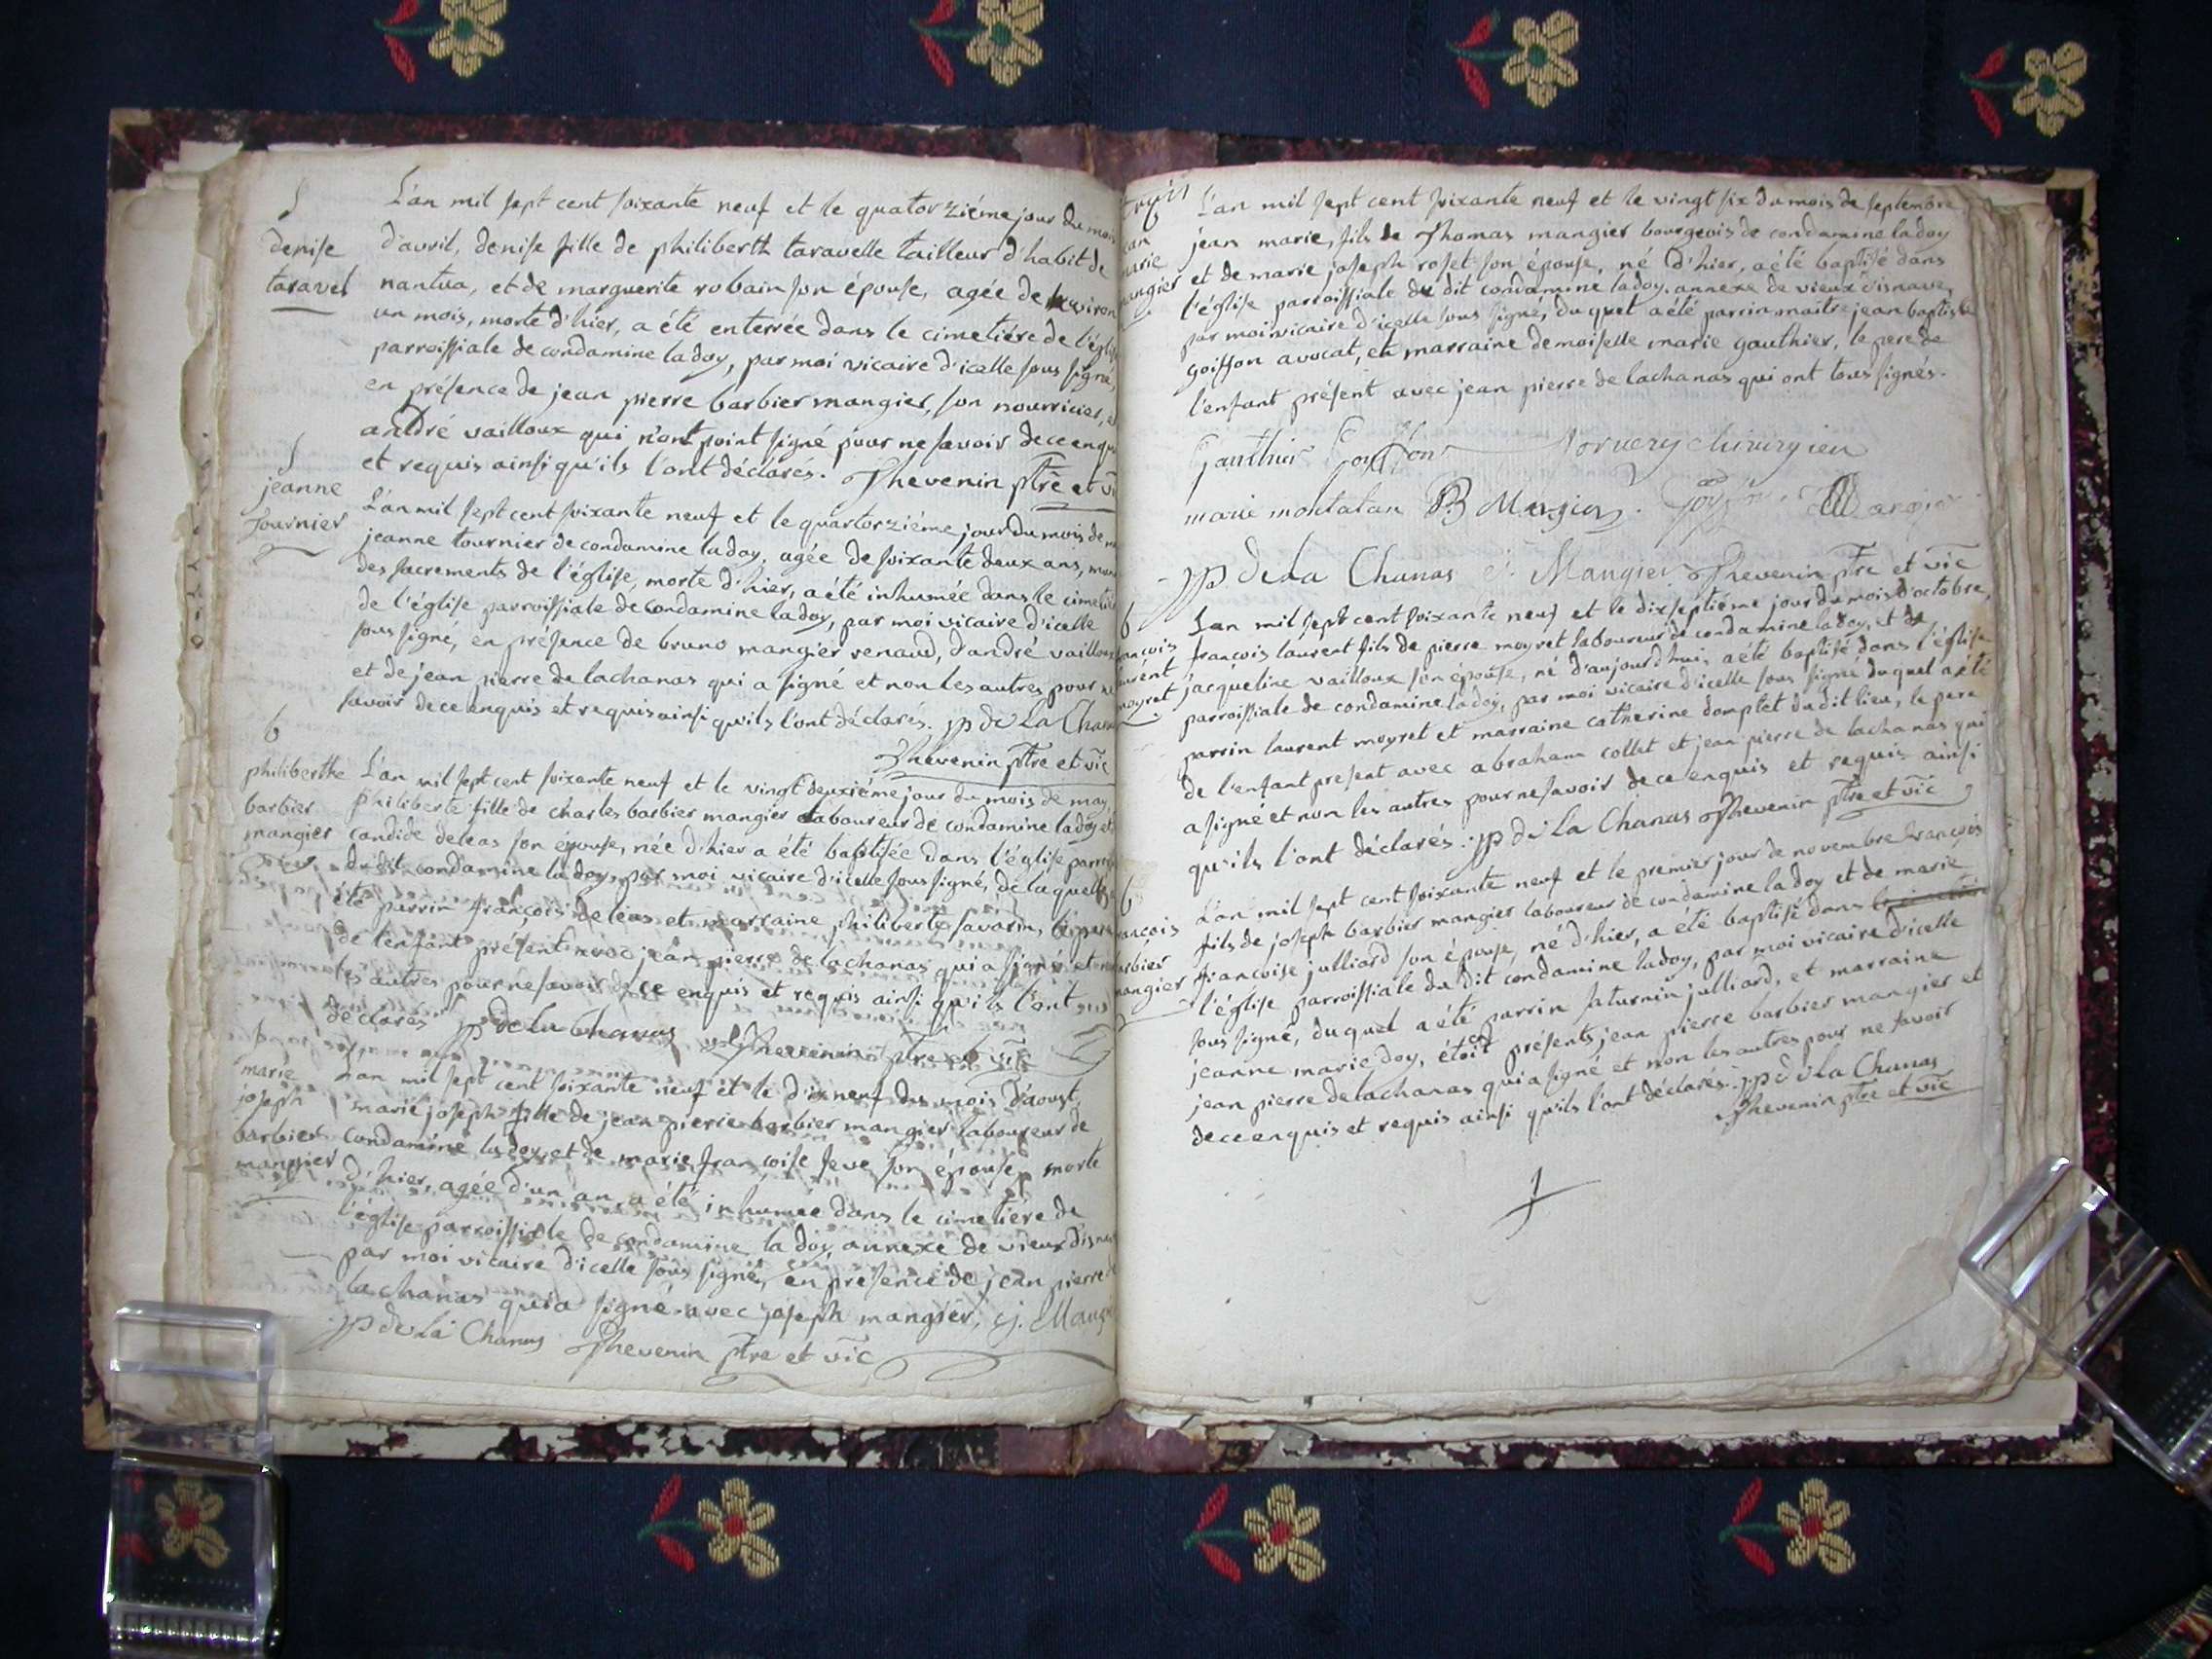 S
denise
taravel
L'an mil sept cent soixante neuf et le quatorziéme jour du mois
d'avril, denise fille de philiberth taravelle tailleur d'habit de
nantua, et de marguerite robain son épouse, agée de environ
un mois, morte d'hier, a été enterrée dans le cimetiére de l'église
parroissiale de condamine la doy, par moi vicaire d'icelle sous signé,
en présence de jean pierre barbier mangier, son nourricier, et
andré vailloux qui n'ont point signé pour ne savoir de ce enquis
et requis ainsi qu'ils l'ont déclarés. Thevenin ptre et vic
S
jeanne
tournier
L'an mil sept cent soixante neuf et le quartorziéme jour du mois de
jeanne tournier de condamine la doy, agée de soixante deux ans,
des sacrements de l'église, morte d'hier, a été inhumée dans le cimetiére
de l'église parroissiale de condamine la doy, par moi vicaire d'icelle
sous signé, en présence de bruno mangier renaud, d'andré vailloux
et de jean pierre de lachanas qui a signé et non les autres pour ne
savoir de ce enquis et requis ainsi qu'ils l'ont déclarés. jp de La Chanas
Thevenin ptre et vic
b
philiberthe
barbier
mangier
L'an mil sept cent soixante neuf et le vingt deuxiéme jour du mois de may,
philiberte fille de charles barbier mangier laboureur de condamine la doy et
candide deleas son épouse, née d'hier a été baptisée dans l'église
du dit condamine la doy, par moi vicaire d'icelle sous signé, de laquelle a
été parrin françois deleas et marraine philiberte savarin, le pere
de l'enfant présent avec jean pierre de lachanas qui a signé et non
les autres pour ne savoir de ce enquis et requis ainsi qu'ils l'ont
déclarés jp de La Chanas Thevenin ptre et vic
S
marie
joseph
barbier
mangier
L'an mil sept cent soixante neuf et le dixneuf du mois d'aoust,
marie joseph fille de jean pierre barbier mangier laboureur de
condamine la doy et de marie françoise seve son épouse, morte
d'hier, agée d'un an, a été inhumée dans le cimetiére de
l'église parroissiale de condamine la doy, annexe de vieux d'isnave
par moi vicaire d'icelle sous signé, en présence de jean pierre de
lachanas qui a signé avec joseph mangier, j. Mangier
jp de La Chanas Thevenin ptre et vic
b
jean
marie
mangier
L'an mil sept cent soixante neuf et le vingt six du mois de septembre,
jean marie, fils de Thomas mangier bourgeois de condamine la doy
et de marie joseph roset son épouse, né d'hier, a été baptisé dans
l'église parroissiale du dit condamine la doy, annexe de vieux d'isnave,
par moi vicaire d'icelle sous signé, duquel a été parrin maitre jean baptiste
goisson avocat, et marraine demoiselle marie gauthier, le pere de
l'enfant présent avec jean pierre de lachanas qui ont tous signés.
Gauthier Goiffon Norvery chirurgien
marie montalan JB Mangier Mangier
jp de La Chanas j. Mangier Thevenin ptre et vic
b
françois
laurent
moyret
L'an mil sept cent soixante neuf et le dix septiéme jour du mois d'octobre,
françois laurent fils de pierre moyret laboureur de condamine la doy, et de
jacqueline vailloux son épouse, né d'aujourd'hui, a été baptisé dans l'église
parroissiale de condamine la doy, par moi vicaire d'icelle sous signé duquel a été
parrin laurent moyret et marraine catherine domplet du dit lieu, le pere
de l'enfant present avec abraham collet et jean pierre de lachanas qui
a signé et non les autres pour ne savoir de ce enquis et requis ainsi
qu'ils l'ont déclarés. jp de La Chanas Thevenin ptre et vic
b
françois
barbier
mangier
L'an mil sept cent soixante neuf et le premier jour de novembre françois
fils de joseph barbier mangier laboureur de condamine la doy et de marie
françoise julliard son épouse, né d'hier, a été baptisé dans
l'église parroissiale du dit condamine la doy, par moi vicaire d'icelle
sous signé, duquel a été parrin saturnin julliard, et marraine
jeanne marie doy, étoit présents jean pierre barbier mangier et
jean pierre de lachanas qui a signé et non les autres pour ne savoir
de ce enquis et requis ainsi qu'ils l'ont déclarés. jp de La Chanas
Thevenin ptre et vic